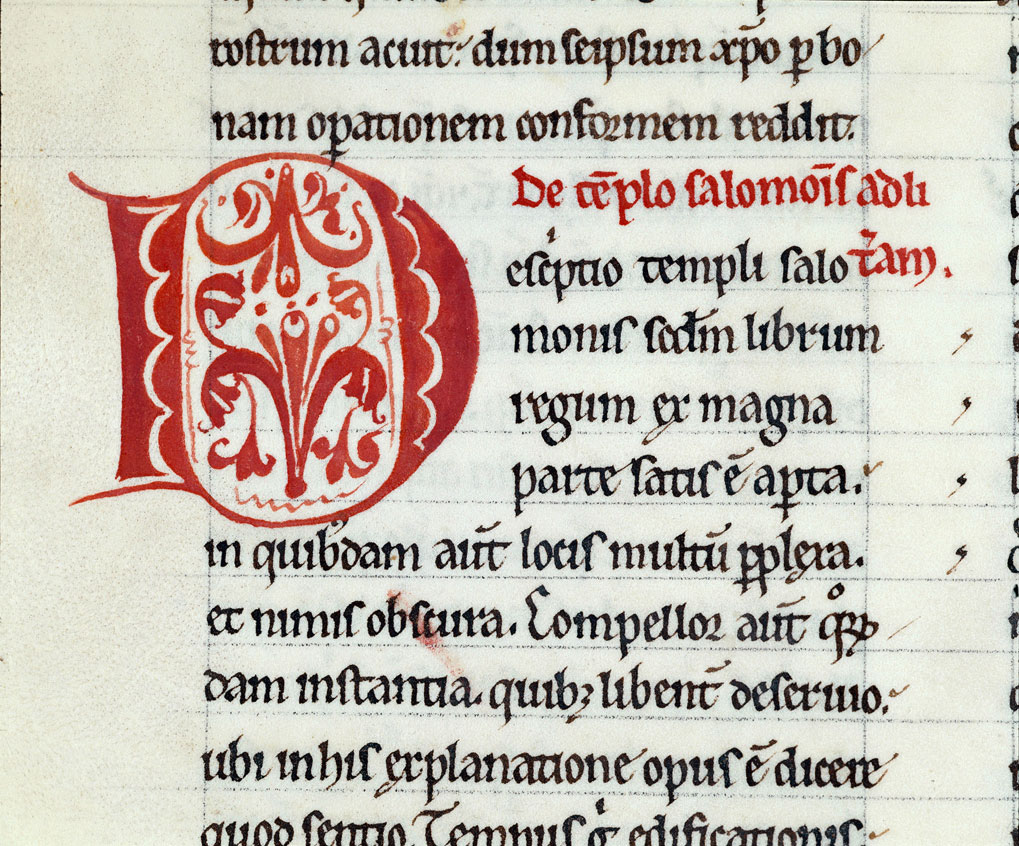 rostrum acuit: dum seipsum xp̄o ꝑ bo
nam oꝑationem conformem reddit.
De tē̄plo salomōis ad li
t̄ram.
Descͥptio templi salo
monis scd̄m librum
regum ex magna
parte satis ē aꝑta.
in quibꝰdam aūt locis multū ꝑplexa.
et nimis obscura. Compellor aūt quoꝝ
dam instantia. quibꝫ libent̄ deseruio.
ubi in his explanatione opus ē dicere
quod sentio. Tempus gͥ edificationis